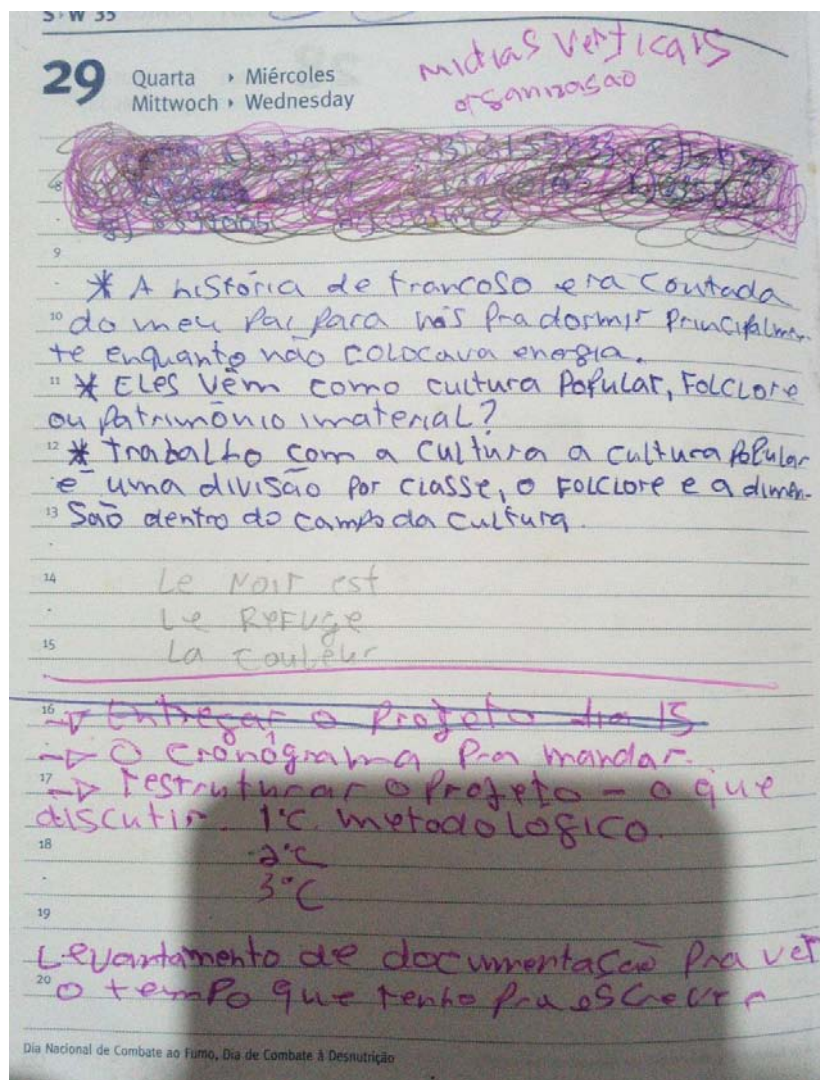 S › W 35
29 Quarta › Miércoles
Mittwoch › Wednesday
midias verticais
organizasão
9
* A história de trancoso era contada
10 do meu pai para nós pra dormir principalmen-
te enquanto não colocava energia.
11 * Eles vêm como cultura popular, Folclore
ou patrimônio imaterial?
12 * trabalho com a cultura a cultura popular
é uma divisão por classe, o Folclore e a dimen-
13 são dentro do campo da cultura.
14 Le Noir est
Le Refuge
15 La couleur
16 Entregar o projeto dia 15
O cronógrama pra mandar.
17 restruturar o projeto - o que
discutir. 1°C. metodologico.
18 2°C
3°C
19
Levantamento de documentação pra ver
20 o tempo que tenho pra escrever
Dia Nacional de Combate ao Fumo, Dia de Combate à Desnutrição